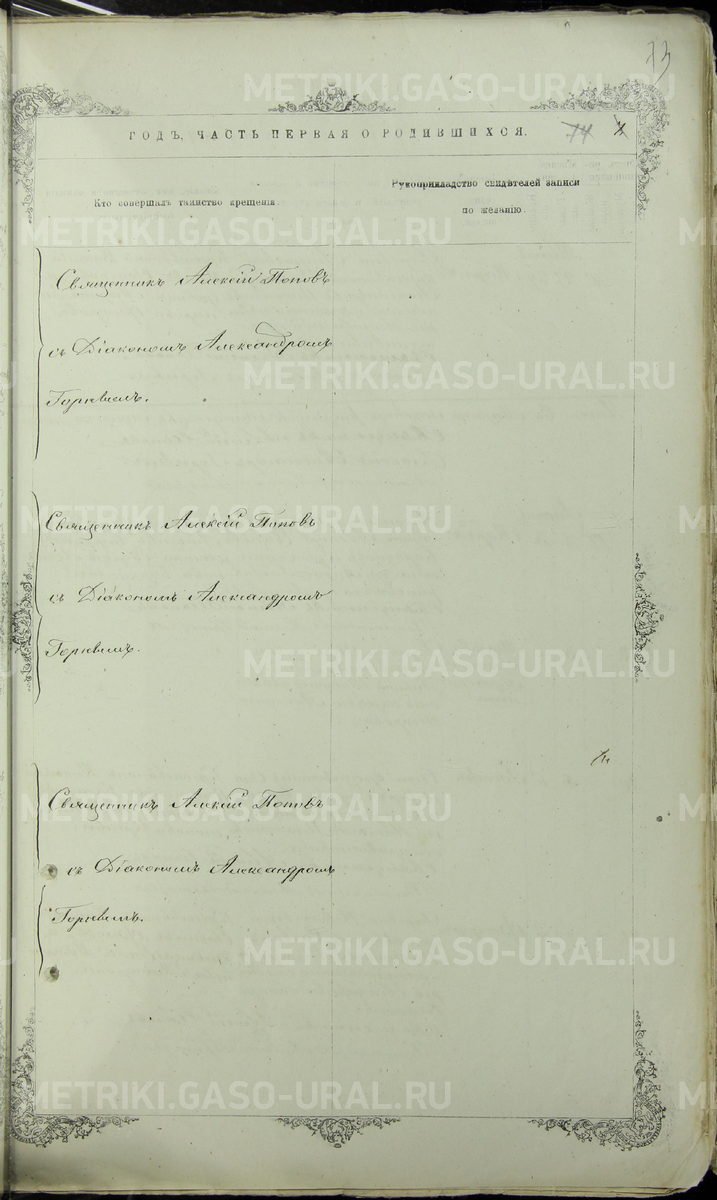 73
ГОДЪ, ЧАСТЬ ПЕРВАЯ О РОДИВШИХСЯ.
74
Кто совершалъ таинство крещенія.
Рукоприкладство свидѣтелей записи
по желанію.
Священникъ Алексій Поповъ
съ Діакономъ Александромъ
Священникъ Алексій Поповъ
съ Діакономъ Александромъ
Священникъ Алексій Поповъ
съ Діакономъ Александромъ
METRIKI.GASO-URAL.RU
METRIKI.GASO-URAL.RU
METRIKI.GASO-URAL.RU
METRIKI.GASO-URAL.RU
METRIKI.GASO-URAL.RU
METRIKI.GASO-URAL.RU
METRIKI.GASO-URAL.RU
METRIKI.GASO-URAL.RU